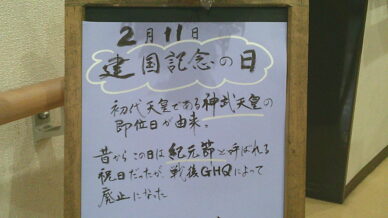 2月11日
建国記念の日
初代天皇である神武天皇の
即位日が由来。
昔からこの日は紀元節と呼ばれる
祝日だったが、戦後GHQによって
廃止になった